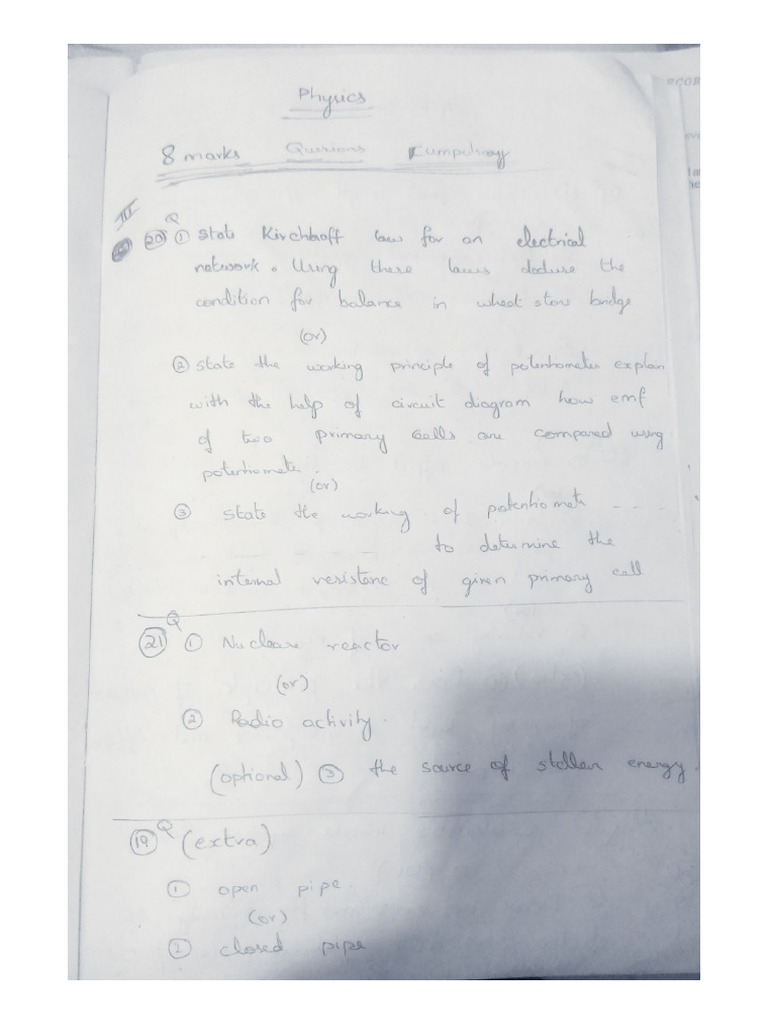 Physics
8 marks Questions Cumpulsory
III
Q
20 ① State Kirchhoff law for an electrical
network. Using these laws deduse the
condition for balance in wheat stone bridge
(or)
② State the working principle of potentiometer explain
with the help of circuit diagram how emf
of two primary cells are compared using
potentiometer.
(or)
③ State the working of potentiometer ....
to determine the
internal resistance of given primary cell
Q
21 ① Nucleare reactor
(or)
② Radio activity.
(optional) ③ the source of stellar energy.
Q
19 (extra)
① open pipe.
(or)
② closed pipe